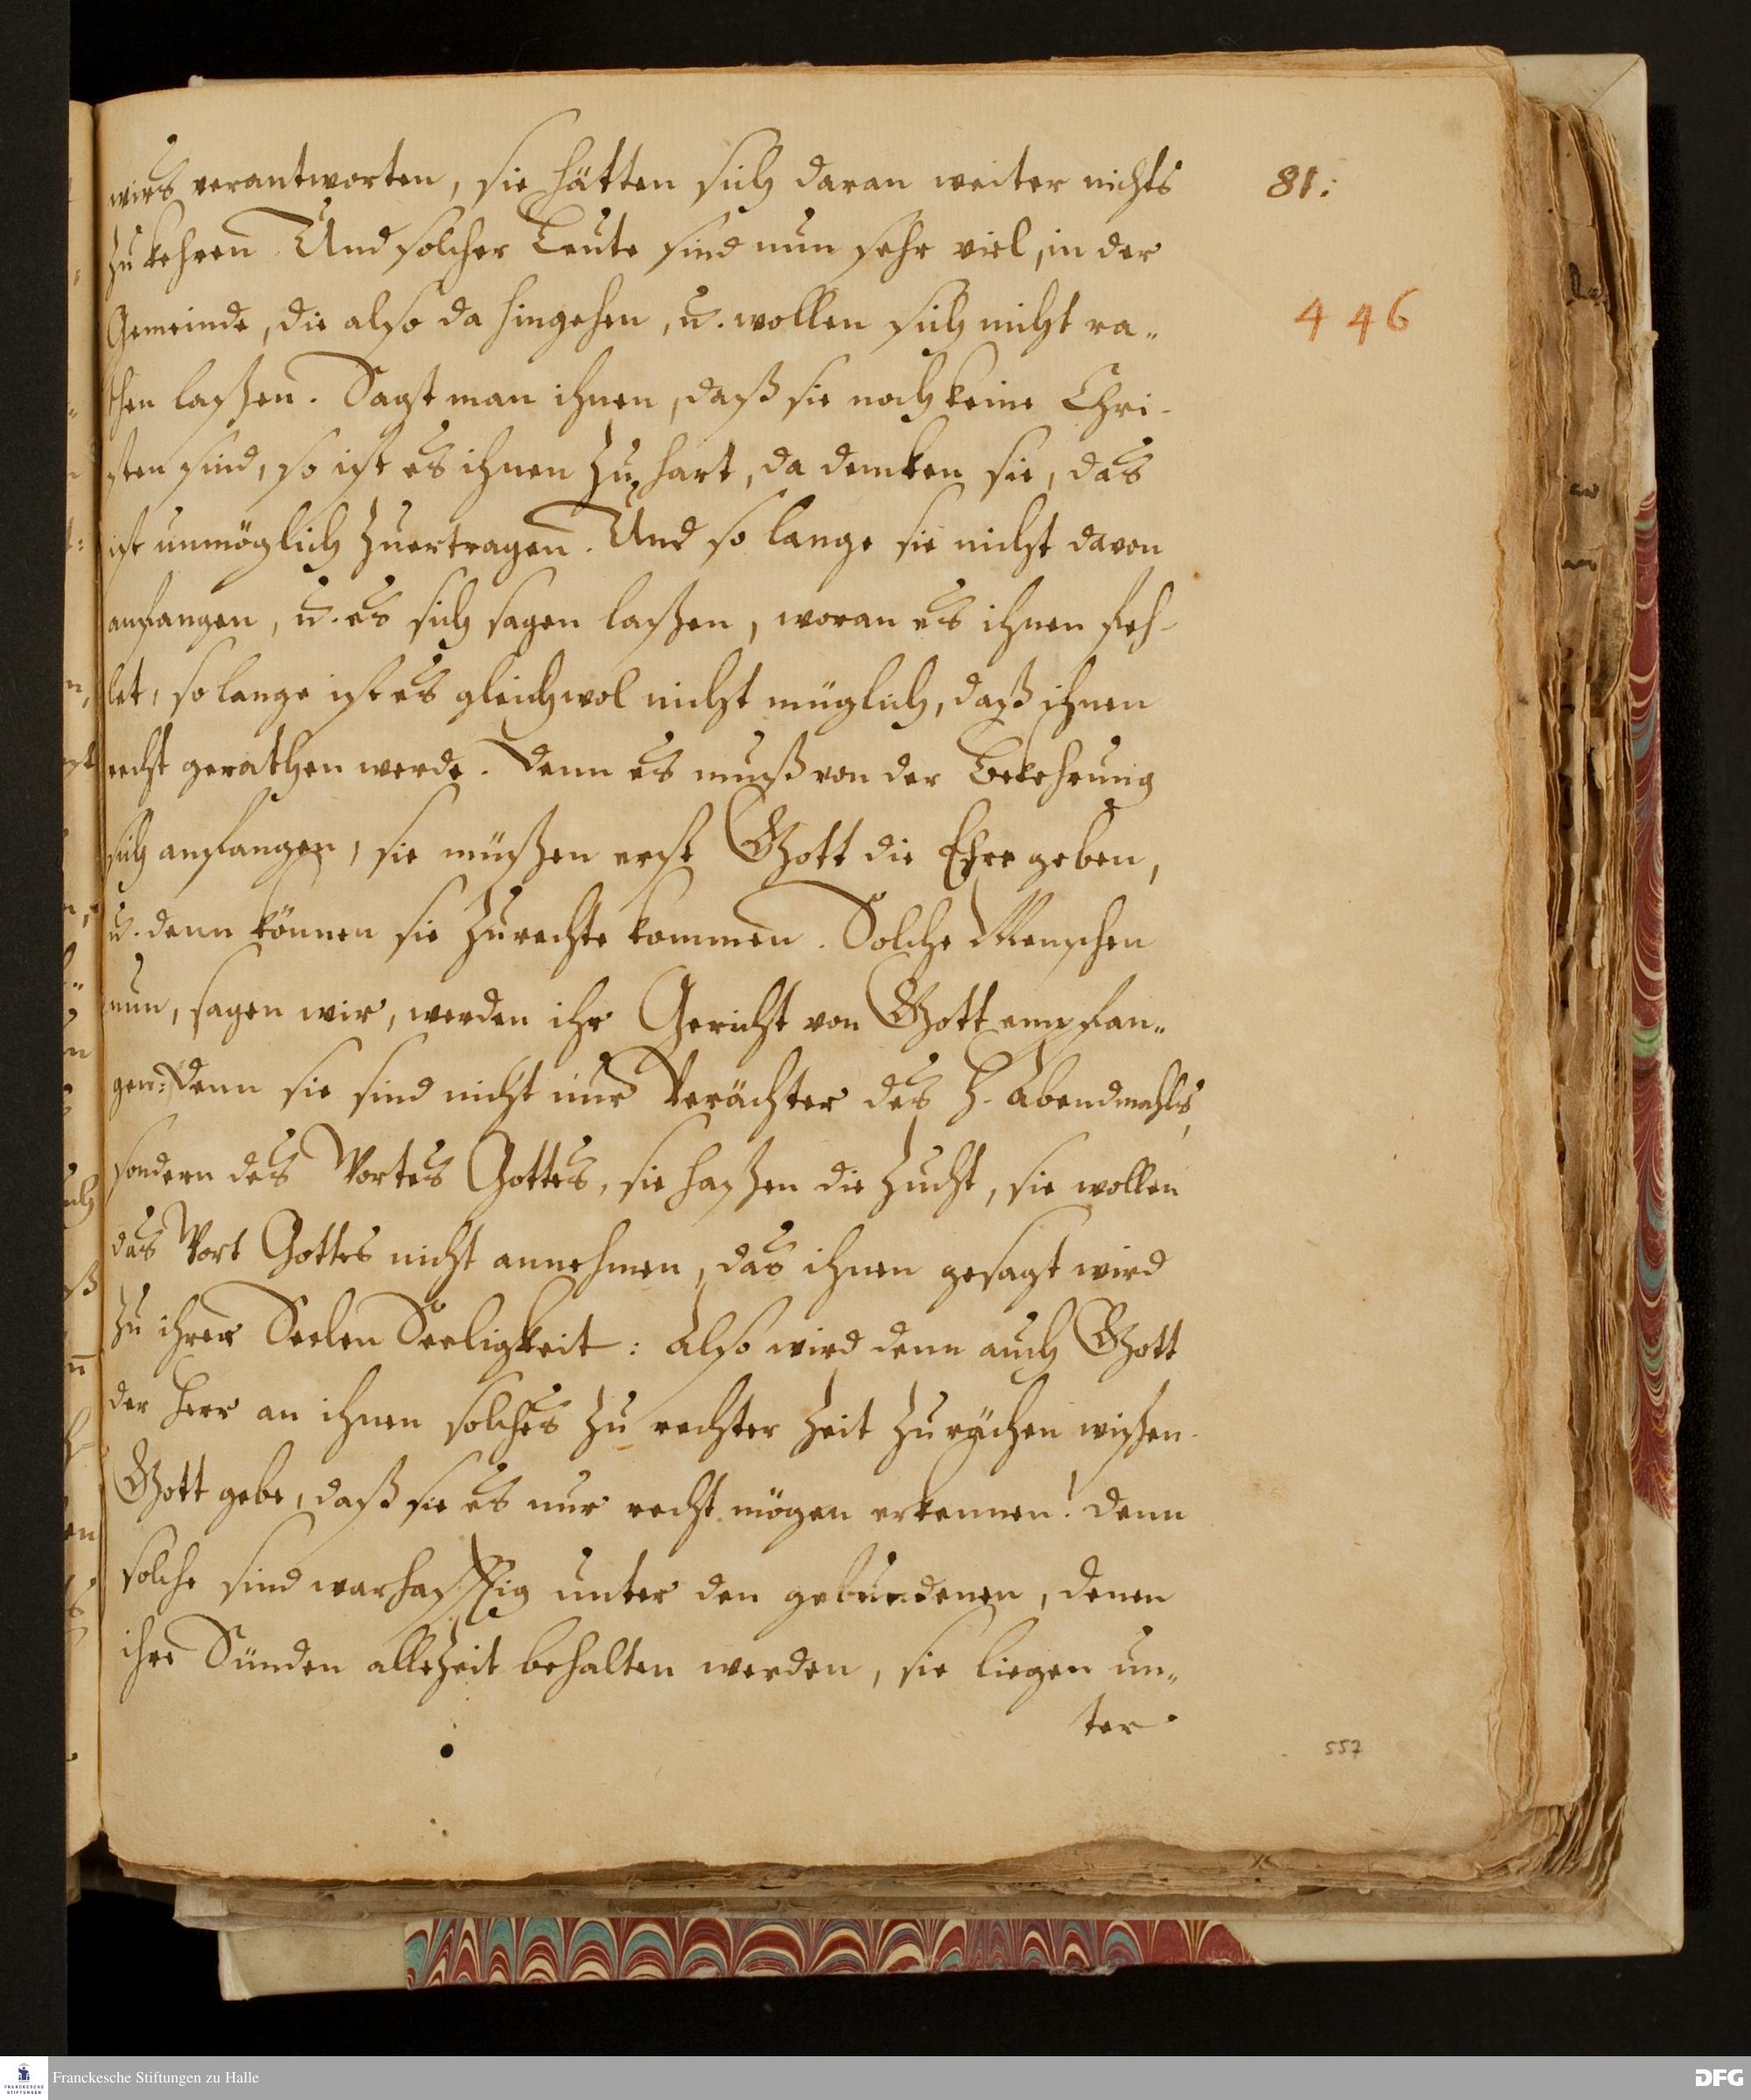 wirs verantworten, sie hätten sich daran weiter nichts
zu kehren. Und solcher Leute sind nun sehr viel, in der
Gemeinde, die also da hingehen, u. wollen sich nicht ra„
then laßen. Sagt man ihnen, daß sie noch keine Chri-
sten sind, so ist es ihnen zu hart, da dencken sie, das
ist unmöglich zuertragen. Und so lange sie nicht davon
anfangen, u. es sich sagen laßen, woran es ihnen feh-
let, so lange ist es gleichwol nicht müglich, daß ihnen
recht gerathen werde. Denn es muß von der Bekehrung
sich anfangen, sie müßen erst Gott die Ehre geben,
u. denn können sie zurechte kommen. Solche Menschen
nun, sagen wir, werden ihr Gericht von Gott empfan„
gen: Denn sie sind nicht nur Verächter des H. Abendmahls,
sondern des Wortes Gottes, sie haßen die Zucht, sie wollen
das Wort Gottes nicht annehmen, das ihnen gesagt wird
zu ihrer Seelen Seeligkeit: Also wird denn auch Gott
der Herr an ihnen solches zu rechter Zeit zu rächen wißen.
Gott gebe, daß sie es nur recht mögen erkennen! denn
solche sind warhafftig unter den gebundenen, denen
ihre Sünden allezeit behalten werden, sie liegen un„
ter
81.
446
557
Franckesche Stiftungen zu Halle
FRANCKESCHE
STIFTUNGEN
DFG